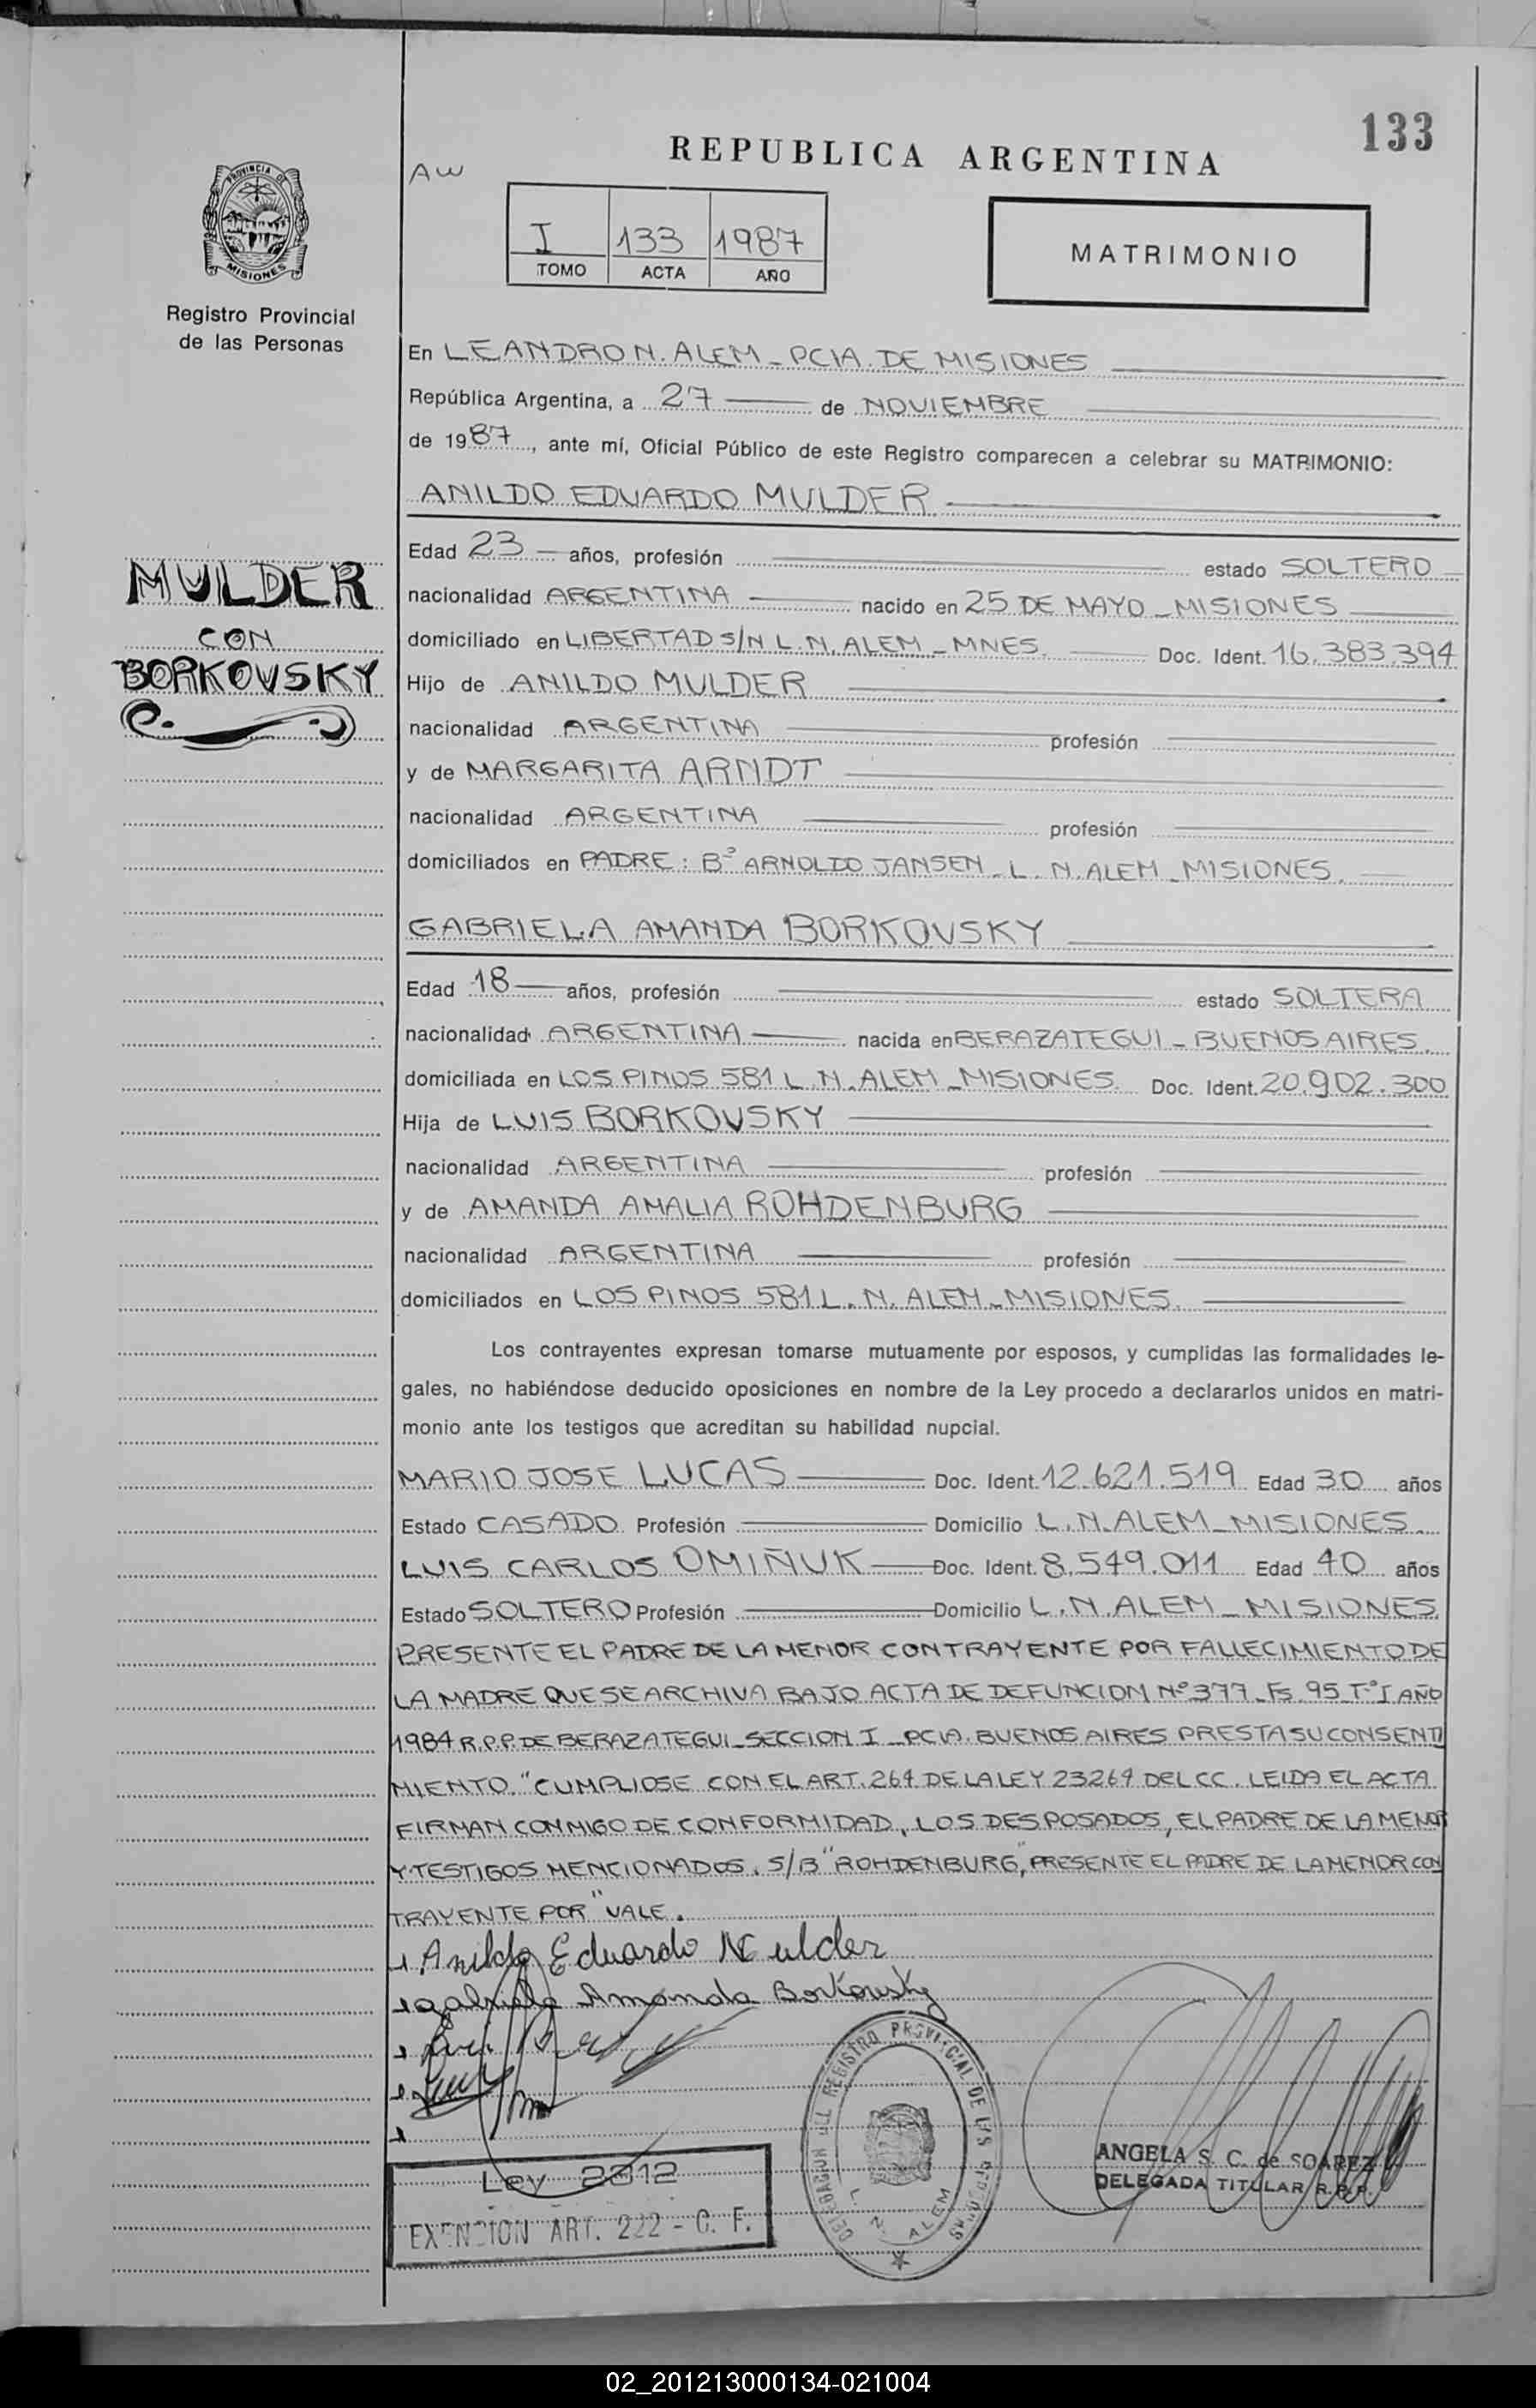 133
REPUBLICA ARGENTINA
AW
PROVINCIA DE
MISIONES
Registro Provincial
de las Personas
I 133 1987
TOMO ACTA AÑO
MATRIMONIO
En LEANDRO N. ALEM - PCIA. DE MISIONES
República Argentina, a 27 de NOVIEMBRE
de 1987, ante mí, Oficial Público de este Registro comparecen a celebrar su MATRIMONIO:
ANILDO EDUARDO MULDER
Edad 23 años, profesión estado SOLTERO
MULDER
CON
BORKOVSKY
nacionalidad ARGENTINA nacido en 25 DE MAYO - MISIONES
domiciliado en LIBERTAD S/N L. N. ALEM - MNES. Doc. Ident. 16.383.394
Hijo de ANILDO MULDER
nacionalidad ARGENTINA profesión
y de MARGARITA ARNDT
nacionalidad ARGENTINA profesión
domiciliados en PADRE: Bº ARNOLDO JANSEN - L. N. ALEM - MISIONES.
GABRIELA AMANDA BORKOVSKY
Edad 18 años, profesión estado SOLTERA
nacionalidad ARGENTINA nacida en BERAZATEGUI - BUENOS AIRES.
domiciliada en LOS PINOS 581 L. N. ALEM - MISIONES. Doc. Ident. 20.902.300
Hija de LUIS BORKOVSKY
nacionalidad ARGENTINA profesión
y de AMANDA AMALIA ROHDENBURG
nacionalidad ARGENTINA profesión
domiciliados en LOS PINOS 581 L. N. ALEM - MISIONES.
Los contrayentes expresan tomarse mutuamente por esposos, y cumplidas las formalidades le-
gales, no habiéndose deducido oposiciones en nombre de la Ley procedo a declararlos unidos en matri-
monio ante los testigos que acreditan su habilidad nupcial.
MARIO JOSE LUCAS Doc. Ident. 12.621.519 Edad 30 años
Estado CASADO Profesión Domicilio L. N. ALEM - MISIONES.
LUIS CARLOS OMIÑUK Doc. Ident. 8.549.011 Edad 40 años
Estado SOLTERO Profesión Domicilio L. N. ALEM - MISIONES.
PRESENTE EL PADRE DE LA MENOR CONTRAYENTE POR FALLECIMIENTO DE
LA MADRE QUE SE ARCHIVA BAJO ACTA DE DEFUNCION Nº 377 - Fs. 95 Tº I AÑO
1984 R.P.P. DE BERAZATEGUI - SECCION I - PCIA. BUENOS AIRES PRESTA SU CONSENTI
MIENTO." CUMPLIOSE CON EL ART. 264 DE LA LEY 23264 DEL CC. LEIDA EL ACTA
FIRMAN CONMIGO DE CONFORMIDAD, LOS DESPOSADOS, EL PADRE DE LA MENOR
Y TESTIGOS MENCIONADOS. S/B "ROHDENBURG, PRESENTE EL PADRE DE LA MENOR CON
TRAYENTE POR" VALE.
Anildo Eduardo Mulder
Gabriela Amanda Borkovsky
DELEGACION DEL REGISTRO PROVINCIAL DE LAS PERSONAS
L. N. ALEM
ANGELA S. C. de SOAREZ
DELEGADA TITULAR R.P.P.
Ley 2312
EXENCION ART. 222 - C. F.
02_201213000134-021004